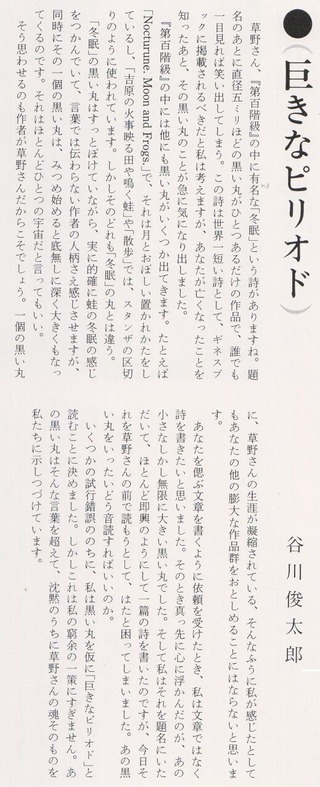 ●(巨きなピリオド)
谷川俊太郎
草野さん、『第百階級』の中に有名な「冬眠」という詩がありますね。題
名のあとに直径五ミリほどの黒い丸がひとつあるだけの作品で、誰でも
一目見れば笑い出してしまう。この詩は世界一短い詩として、ギネスブ
ックに掲載されるべきだと私は考えますが、あなたが亡くなったことを
知ったあと、その黒い丸のことが急に気になり出しました。
『第百階級』の中には他にも黒い丸がいくつか出てきます。たとえば
「Nocturune. Moon and Frogs.」で、それは月とおぼしい置かれかたをし
ているし、「吉原の火事映る田や鳴く蛙」や「散歩」では、スタンザの区切
りのように使われています。しかしそのどれも「冬眠」の丸とは違う。
「冬眠」の黒い丸はすっとぼけていながら、実に的確に蛙の冬眠の感じ
をつかんでいて、言葉では伝わらない作者の人柄さえ感じさせますが、
同時にその一個の黒い丸は、みつめ始めると底無しに深く大きくもなっ
てくるのです。それはほとんどひとつの宇宙だと言ってもいい。
そう思わせるのも作者が草野さんだからこそでしょう。一個の黒い丸
に、草野さんの生涯が凝縮されている、そんなふうに私が感じたとして
もあなたの他の膨大な作品群をおとしめることにはならないと思いま
す。
あなたを偲ぶ文章を書くように依頼を受けたとき、私は文章ではなく
詩を書きたいと思いました。そのとき真っ先に心に浮かんだのが、あの
小さなしかし無限に大きい黒い丸でした。そして私はそれを題名にいた
だいて、ほとんど即興のようにして一篇の詩を書いたのですが、今日そ
れを草野さんの前で読もうとして、はたと困ってしまいました。あの黒
い丸をいったいどう音読すればいいのか。
いくつかの試行錯誤ののちに、私は黒い丸を仮に「巨きなピリオド」と
読むことに決めました。しかしこれは私の窮余の一策にすぎません。あ
の黒い丸はそんな言葉を超えて、沈黙のうちに草野さんの魂そのものを
私たちに示しつづけています。